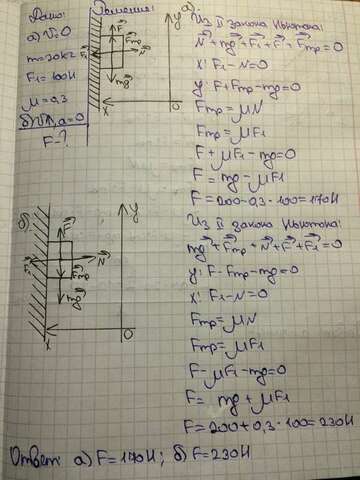 Дано:
а) V=0
m=20кг
F₁=100Н
μ=0,3
б) V↑, a=0
F-?
Решение:
а).
F
Fтр
F₁
N
mg
X
O
y
Из II закона Ньютона:
N+mg+F₁+F+Fтр=0
x: F₁-N=0
y: F+Fтр-mg=0
Fтр=μN
Fтр=μF₁
F+μF₁-mg=0
F=mg-μF₁
F=200-0,3·100=170Н
б)
F
F₁
N
Fтр
mg
X
O
y
Из II закона Ньютона:
mg+Fтр+N+F+F₁=0
y: F-Fтр-mg=0
x: F₁-N=0
Fтр=μN
Fтр=μF₁
F-μF₁-mg=0
F=mg+μF₁
F=200+0,3·100=230Н
Ответ: а) F=170Н; б) F=230Н